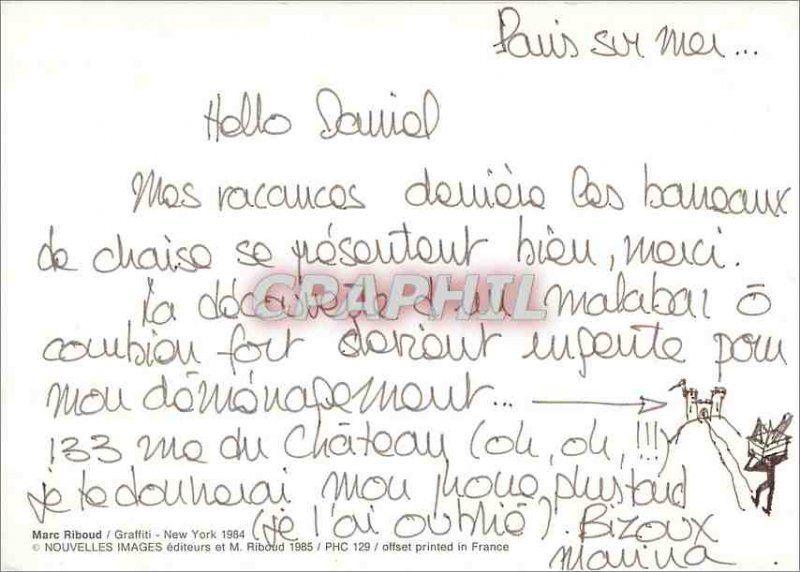 Paris sur mer...
Hello Daniel
Mes vacances derrière les barreaux
de chaise se présentent bien, merci.
La découverte d'un malabar ô
combien fort devient urgente pour
mon déménagement...
133 rue du Château (oh, oh, !!!)
je te donnerai mon phone plus tard
(je l'ai oublié). Bizoux
Marina.
Marc Riboud / Graffiti - New York 1984
© NOUVELLES IMAGES éditeurs et M. Riboud 1985 / PHC 129 / offset printed in France
CPAPHIL